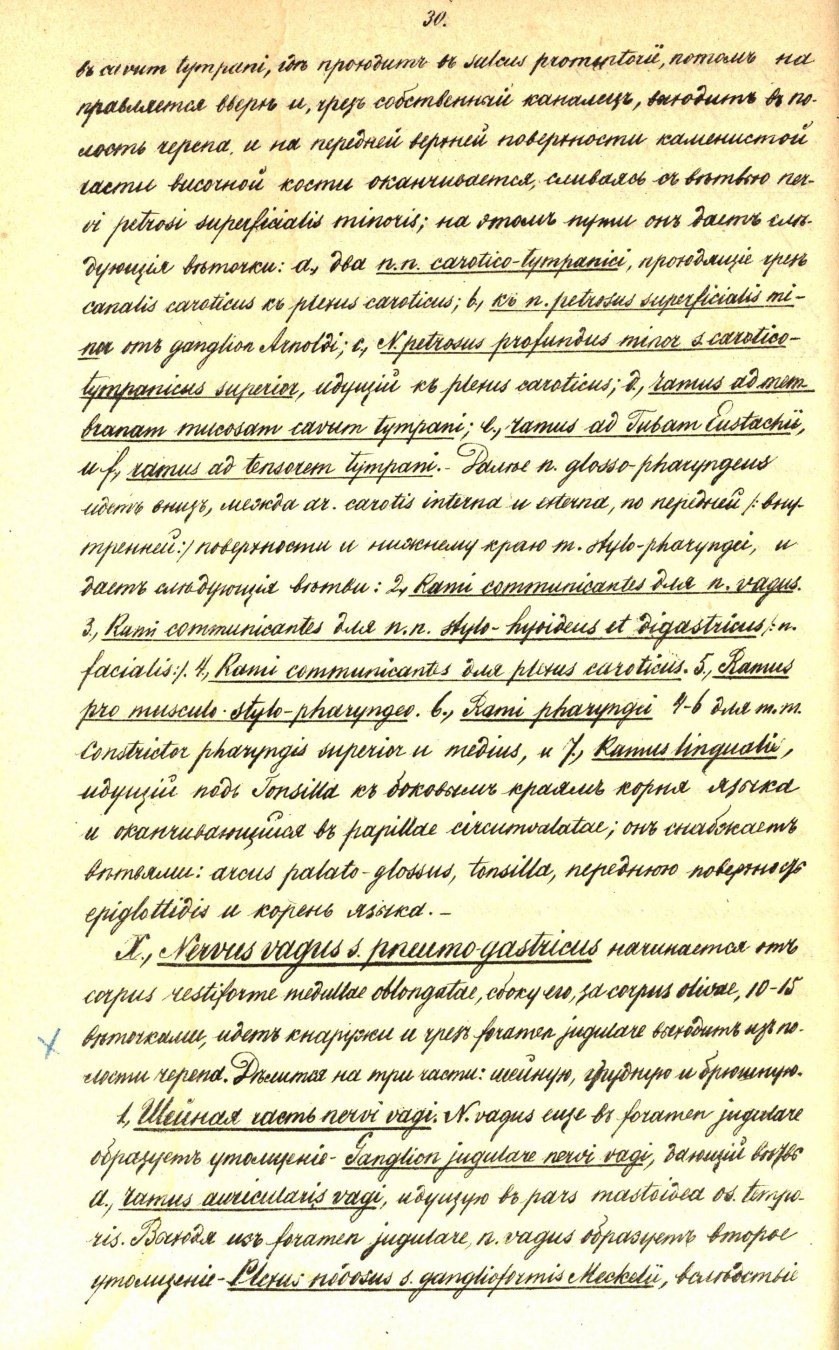 30.
въ cavum tympani, гдѣ проходитъ въ sulcus promontorii, потомъ на
правляется вверхъ и, чрезъ собственный каналецъ, входитъ въ по-
лость черепа, и на передней верхней поверхности каменистой
части височной кости оканчивается, сливаясь съ вѣтвью ner-
vi petrosi superficialis minoris; на этомъ пути онъ даетъ слѣ-
дующія вѣточки: a, два n.n. carotico-tympanici, проходящіе чрезъ
canalis caroticus къ plexus caroticus; b, къ n. petrosus superficialis mi-
nor отъ ganglion Arnoldi; c, N. petrosus profundus minor s. carotico-
tympanicus superior, идущій къ plexus caroticus; d, ramus ad mem-
branam mucosam cavum tympani; e, ramus ad Tubam Eustachii,
и f, ramus ad tensorem tympani.- Далѣе n. glosso-pharyngeus
идетъ внизъ, между ar. carotis interna и externa, по передней /: внут-
тренней:/ поверхности и нижнему краю m. stylo-pharyngei, и
даетъ слѣдующія вѣтви: 2, Rami communicantes для n. vagus.
3, Rami communicantes для n.n. stylo-hyoideus et digastricus /: n.
facialis:/. 4, Rami communicantes для plexus caroticus. 5, Ramus
pro musculo-stylo-pharyngeo. 6, Rami pharyngii 4-6 для m.m.
Constrictor pharyngis superior и medius, и 7, Ramus lingualis,
идущій подъ Tonsilla къ боковымъ краямъ корня языка
и оканчивающійся въ papillae circumvalatae; онъ снабжаетъ
вѣтвями: arcus palato-glossus, tonsilla, переднюю поверхность
epiglottidis и корень языка.-
X, Nervus vagus s. pneumo-gastricus начинается отъ
corpus restiforme medullae oblongatae, сбоку его, за corpus olivae, 10-15
вѣточками, идетъ кнаружи и чрезъ foramen jugulare выходитъ изъ по-
лости черепа. Дѣлится на три части: шейную, грудную и брюшную.
1, Шейная часть nervi vagi. N. vagus еще въ foramen jugulare
образуетъ утолщеніе- Ganglion jugulare nervi vagi, дающій вѣтвь
a, ramus auricularis vagi, идущую въ pars mastoidea os. tempo-
ris. Выходя изъ foramen jugulare, n. vagus образуетъ второе
утолщеніе- Plexus nodosus s. ganglioformis Meckelii, вслѣдствіе